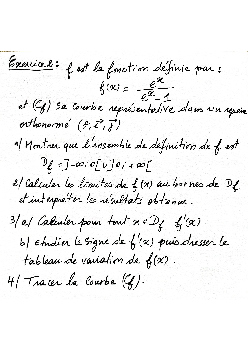 Exercice 2 : f est la fonction définie par :
f(x) = - e^x / (e^x - 1)
et (Cf) sa courbe représentative dans un repère
orthonormé (o, i, j)
1/ Montrer que l'ensemble de définition de f est
Df = ]-∞; 0[ ∪ ]0; +∞[
2/ Calculer les limites de f(x) au bornes de Df
et interpréter les résultats obtenus.
3/ a/ Calculer pour tout x ∈ Df f'(x).
b/ etudier le signe de f'(x) puis dresser le
tableau de variation de f(x).
4/ Tracer la courbe (Cf).